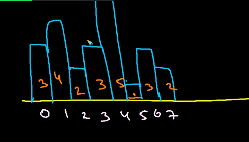 3 4 2 3 5 1 3 2
0 1 2 3 4 5 6 7